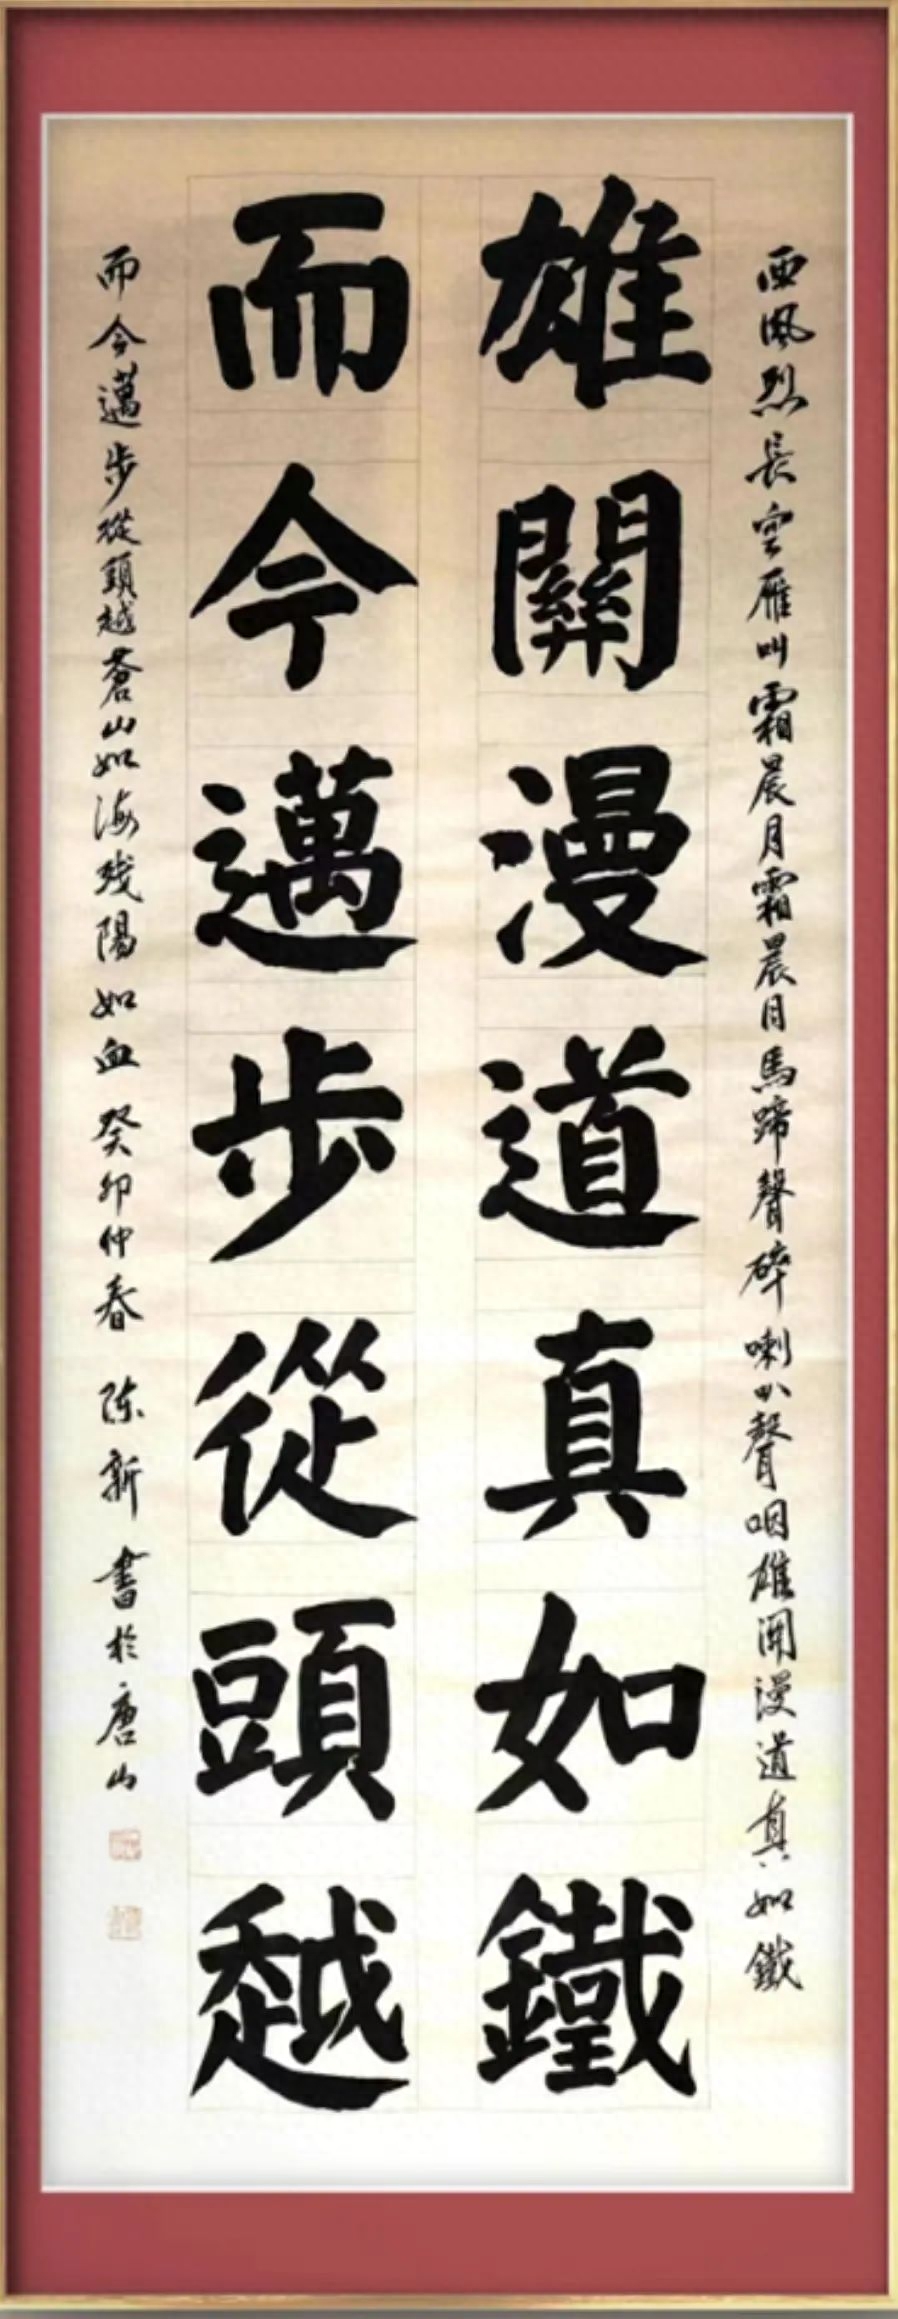 西風烈長空雁叫霜晨月霜晨月馬蹄聲碎喇叭聲咽雄関漫道真如鐵
雄關漫道真如鐵
而今邁步從頭越
而今邁步從頭越蒼山如海残陽如血 癸卯仲春 陈新書於唐山